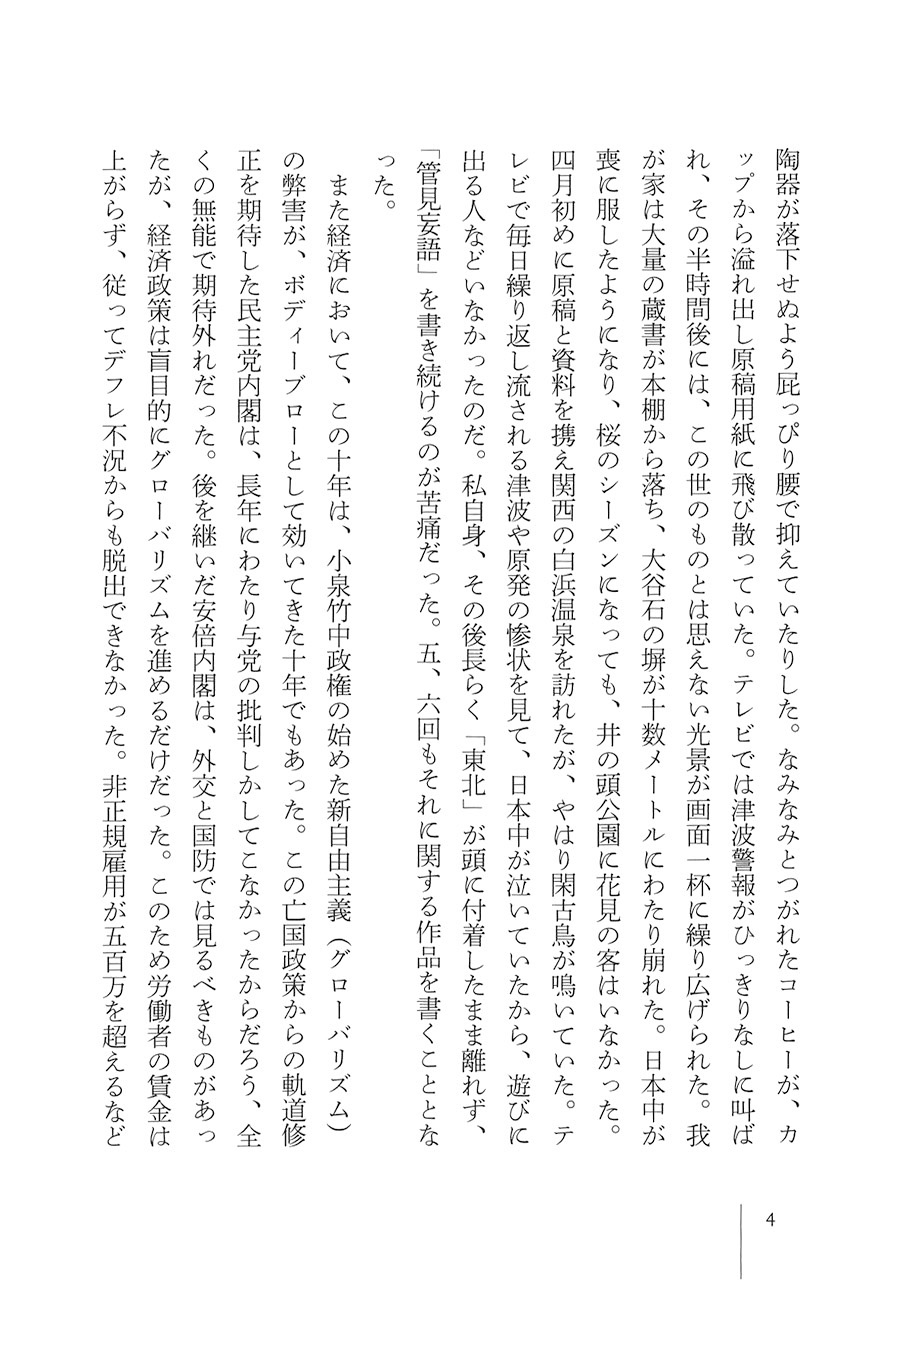 陶器が落下せぬよう屁っぴり腰で抑えていたりした。なみなみとつがれたコーヒーが、カ
ップから溢れ出し原稿用紙に飛び散っていた。テレビでは津波警報がひっきりなしに叫ば
れ、その半時間後には、この世のものとは思えない光景が画面一杯に繰り広げられた。我
が家は大量の蔵書が本棚から落ち、大谷石の塀が十数メートルにわたり崩れた。日本中が
喪に服したようになり、桜のシーズンになっても、井の頭公園に花見の客はいなかった。
四月初めに原稿と資料を携え関西の白浜温泉を訪れたが、やはり閑古鳥が鳴いていた。テ
レビで毎日繰り返し流される津波や原発の惨状を見て、日本中が泣いていたから、遊びに
出る人などいなかったのだ。私自身、その後長らく「東北」が頭に付着したまま離れず、
「管見妄語」を書き続けるのが苦痛だった。五、六回もそれに関する作品を書くこととな
った。
また経済において、この十年は、小泉竹中政権の始めた新自由主義（グローバリズム）
の弊害が、ボディーブローとして効いてきた十年でもあった。この亡国政策からの軌道修
正を期待した民主党内閣は、長年にわたり与党の批判しかしてこなかったからだろう、全
くの無能で期待外れだった。後を継いだ安倍内閣は、外交と国防では見るべきものがあっ
たが、経済政策は盲目的にグローバリズムを進めるだけだった。このため労働者の賃金は
上がらず、従ってデフレ不況からも脱出できなかった。非正規雇用が五百万を超えるなど
4